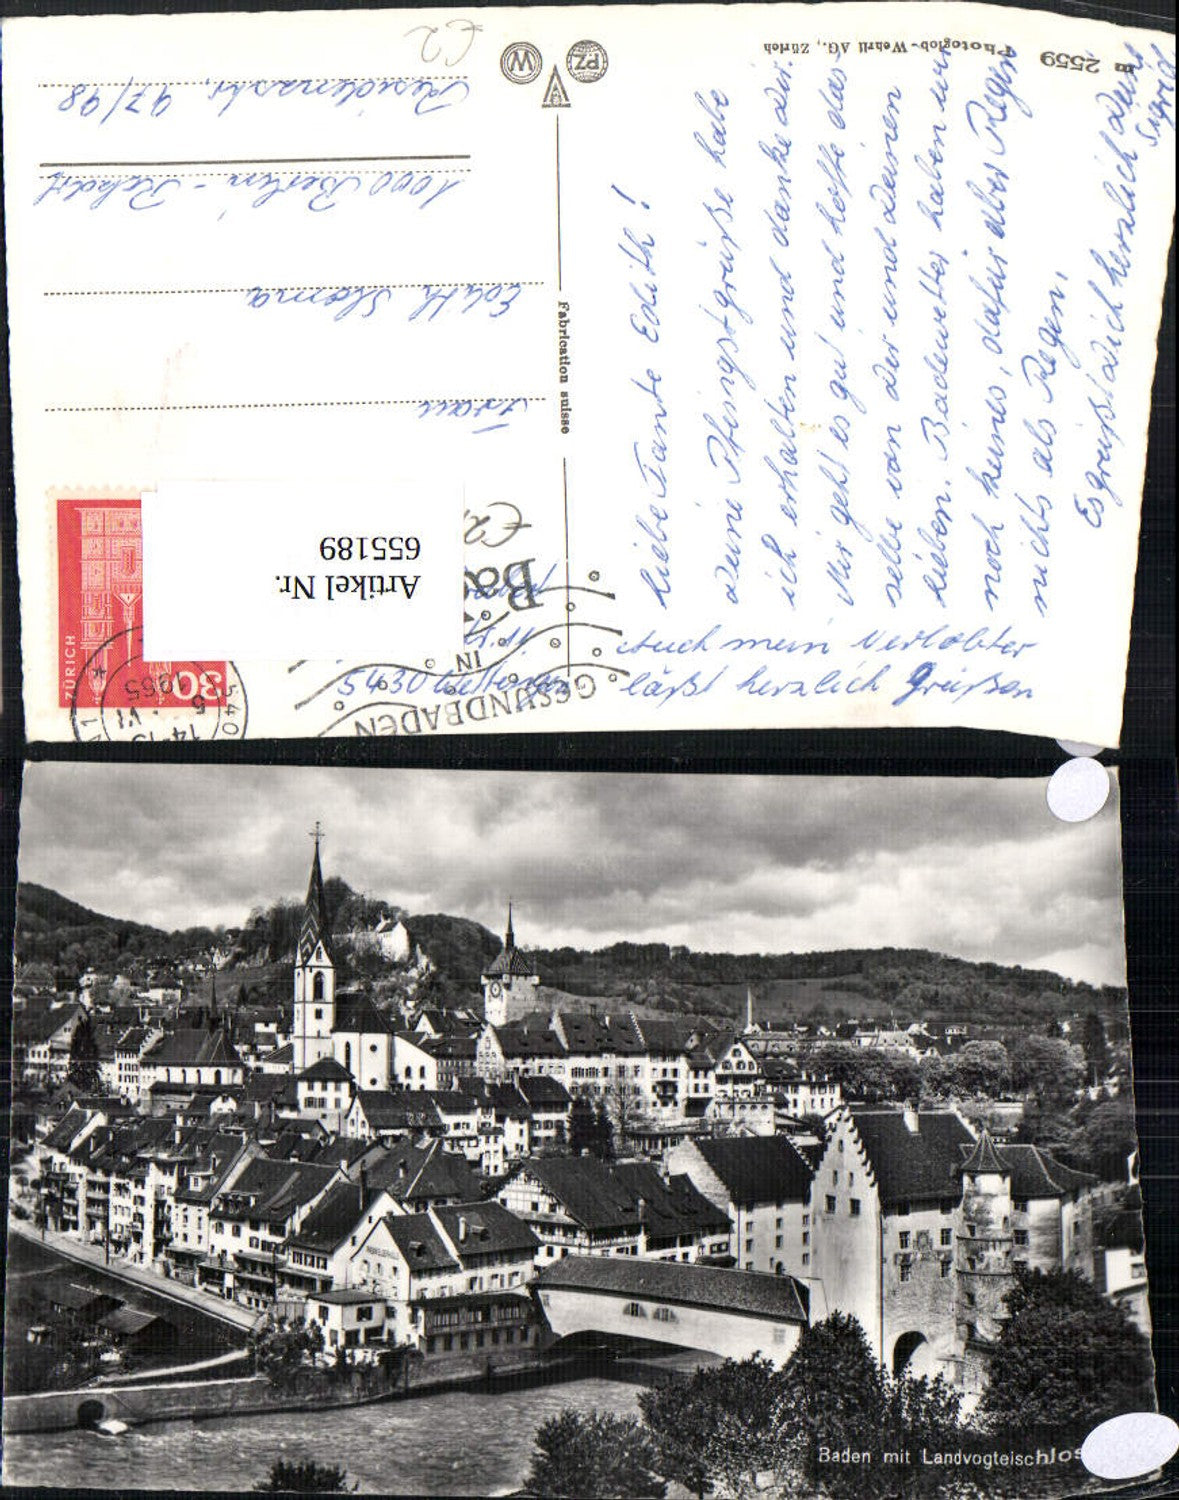 m 2559
Photoglob-Wehrli AG., Zürich
W
PZ
Fabrication suisse
€2
€2,
Liebe Tante Edith!
Deine Pfingstgrüße habe
ich erhalten und danke dir.
Mir geht es gut und hoffe das-
selbe von dir und deinen
Lieben. Badewetter haben wir
noch keines, dafür aber Regen
nichts als Regen.
Es grüßt dich herzlich deine
Sigrid
Auch mein Verlobter
läßt herzlich Grüßen
5430 Wettingen
Frau
Edith
1000 Berlin -
Residenzstr. 97/98
ZÜRICH
30
540
14-15
6. VI
1965
GESUNDBADEN
IN
Ba
Artikel Nr.
655189
Baden mit Landvogteischlos